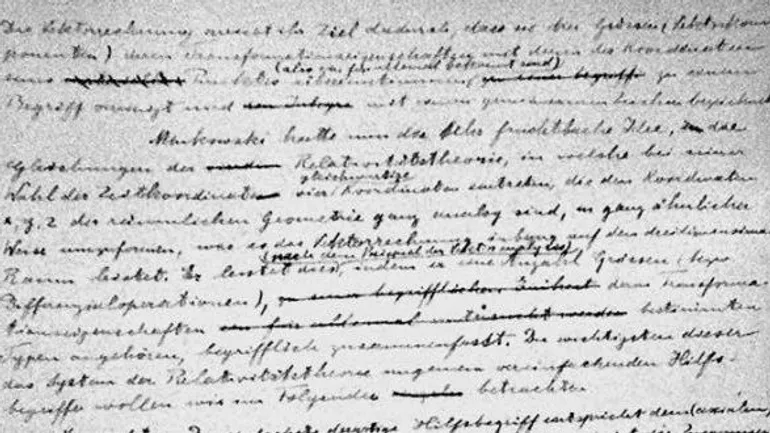 Die Vektorrechnung erreicht ihr Ziel dadurch, dass sie drei Grössen (Vektorkom-
ponenten) deren Transformationseigenschaften mit denen der Koordinaten
eines Punktes (also ein für allemal bekannt sind) übereinstimmen, zu einer begriffl zu einem
Begriff vereinigt und mit einem gemeinsamen
Minkowski hatte nun die sehr fruchtbare Idee, die
Gleichungen der Relativitätstheorie, in welche bei
Wahl der Zeitkoordinate vier gleichwertige Koordinaten eintreten, die den Koordinaten
x, y, z der räumlichen Geometrie ganz analog sind, in ganz ähnlicher
Weise umzuformen, wie es die Vektorrechnung in bezug auf den dreidimensiona
Raum leistet. Er leistet dies, indem er eine Anzahl Grössen (bezw
Differenzialoperationen), zu einer begrifflichen Einheit deren Transforma-
tionseigenschaften bestimmten
Typen angehören, begrifflich zusammenfasst. Die wichtigsten dieser
das System der Relativitätstheorie ungemein vereinfachenden Hilfs-
begriffe wollen wir im Folgenden betrachten.
Hilfsbegriff entspricht dem (axialen)